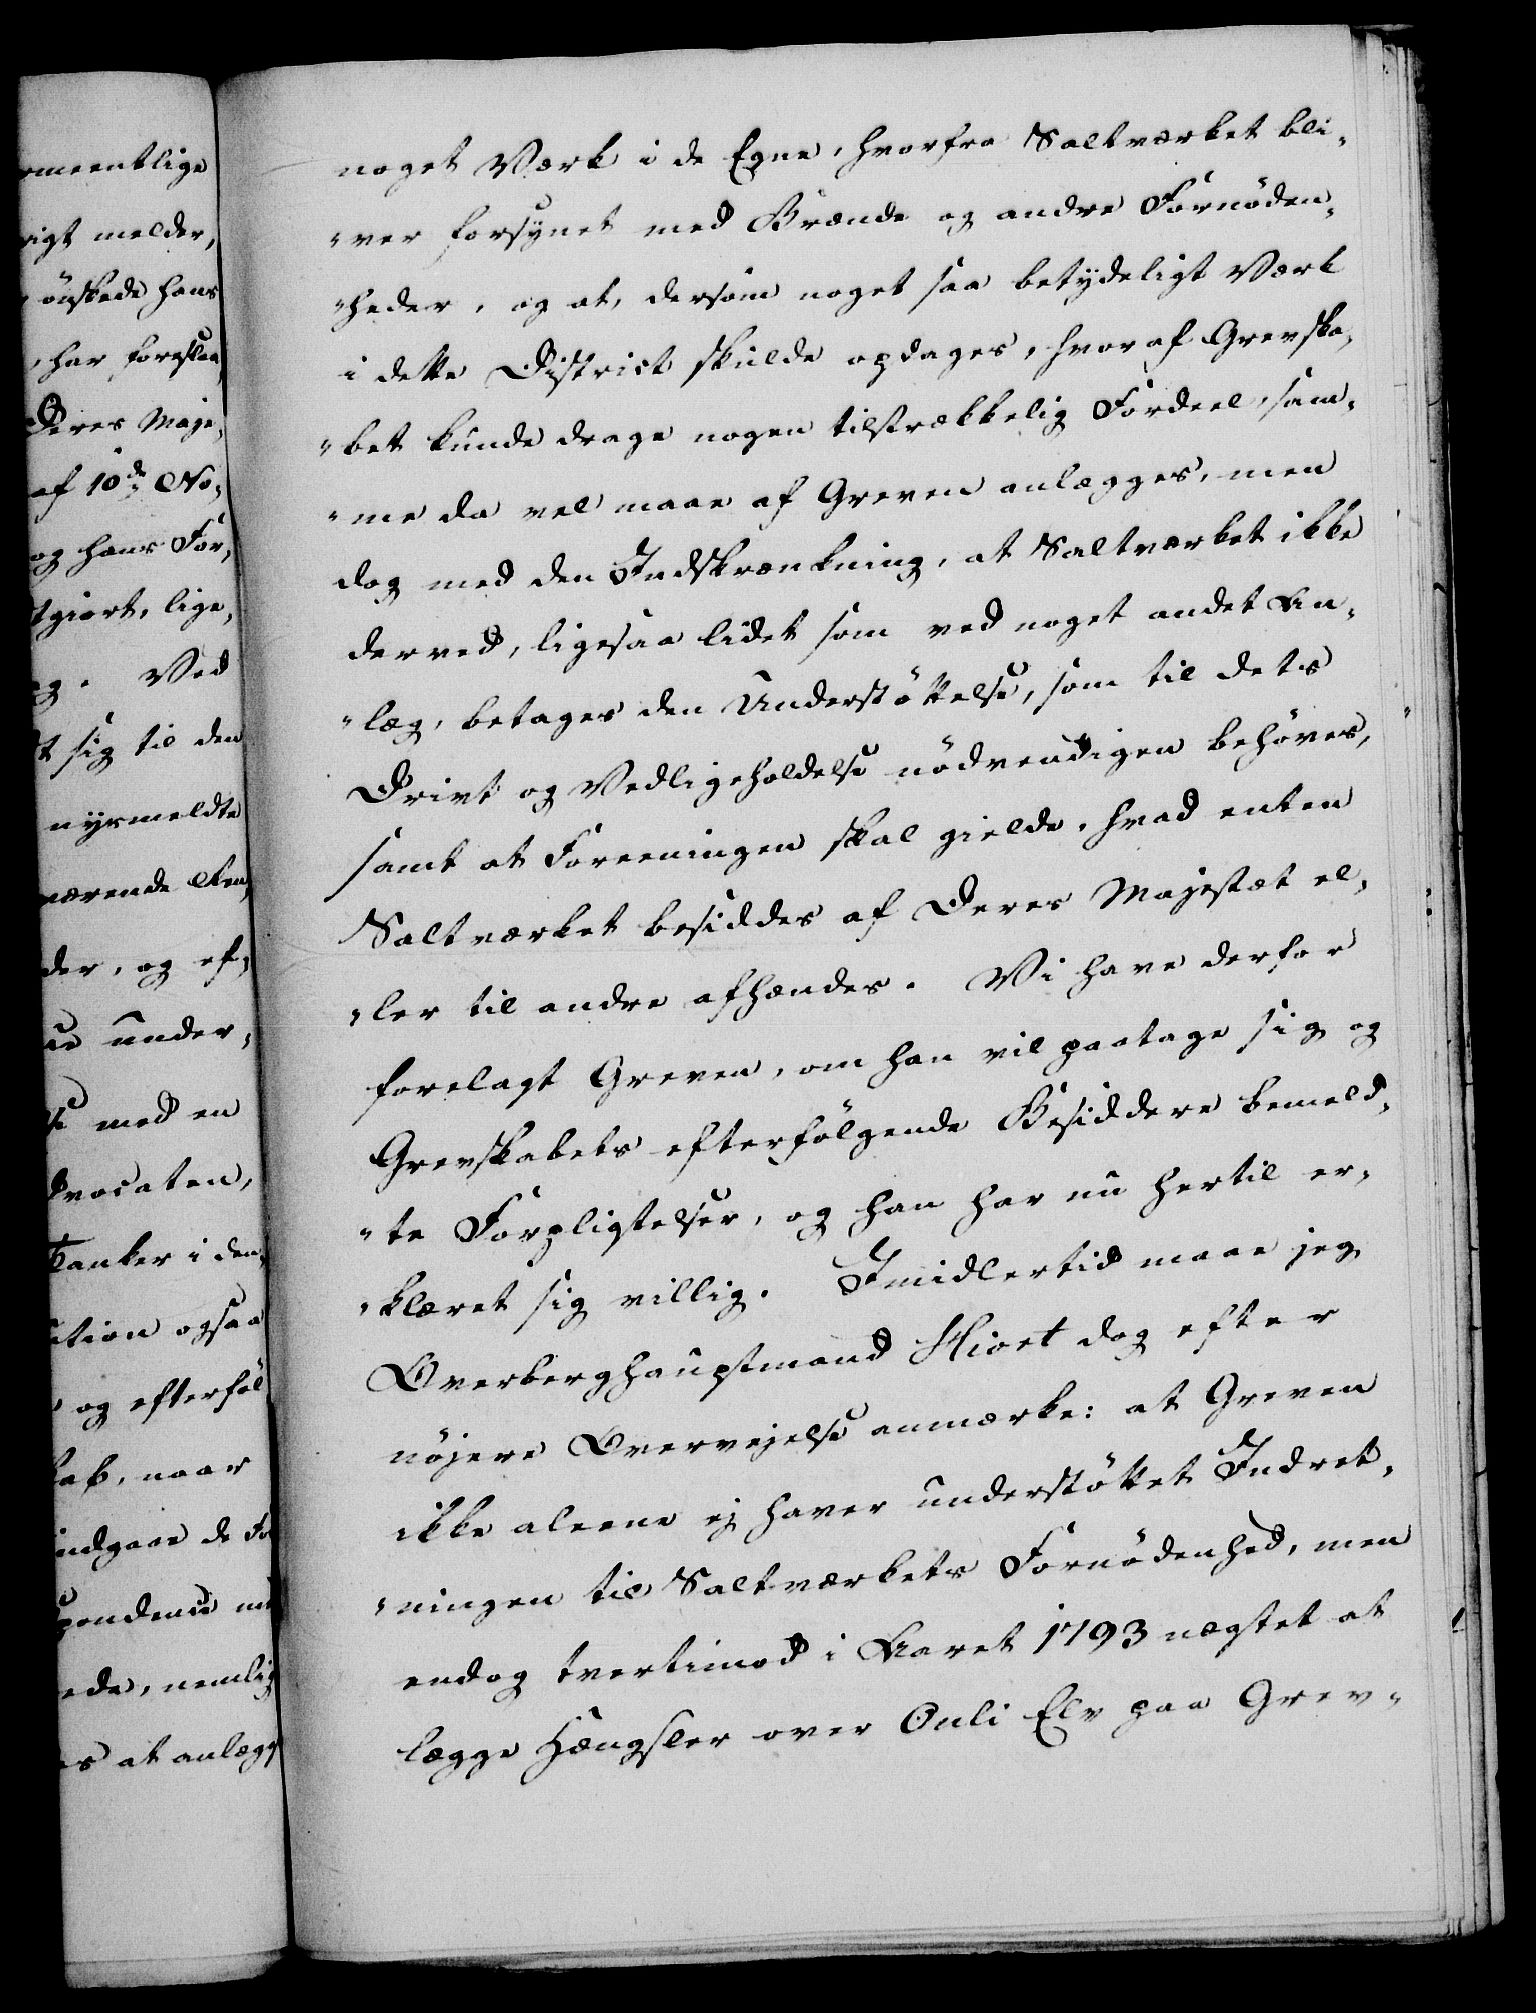 meentlige
rigt melder,
önskede hans
, har foreslaa
Deres Maje„
af 10de No„
og hans For„
tgiort, lige„
g. Ved
t sig til den
nysmeldte
værende
der, og ef„
under„
med en
dvocaten,
Tanker i den„
ition ogsaa
og efterføl
kab, naar
indgaae de Fo
pondence
ede, nemlig
es at anlægg
noget Værk i de Egne, hvorfra Saltværket bli„
„ver forsynet med Brænde og andre Fornöden„
„heder, og at, dersom noget saa betydeligt Værk
i dette District skulde opdages, hvoraf Grevska„
„bet kunde drage nogen tilstrækkelig Fordeel, sam„
„me da vel maae af Greven anlægges, men
dog med den Indskrænkning, at Saltværket ikke
derved, ligesaa lidet som ved noget andet An„
„læg, betages den Understöttelse, som til dets
Drivt og Vedligeholdelse nödvendigen behöves,
samt at Foreeningen skal gielde, hvad enten
Saltværket besiddes af Deres Majestæt el„
„ler til andre afhændes. Vi have derfor
forelagt Greven, om han vil paatage sig og
Grevskabets efterfölgende Besiddere bemeld„
„te Forpligtelser, og han har nu hertil er„
„klæret sig villig. Imidlertid maae jeg
Overberghauptmand Hiort dog efter
nöjere Overvejelse anmærke: at Greven
ikke aleene ej haver understöttet Indret„
„ningen til Saltværkets Fornödenhed, men
endog tvertimod i Aaret 1793 nægtet at
lægge Hængsler over Onli Elv paa Grev„